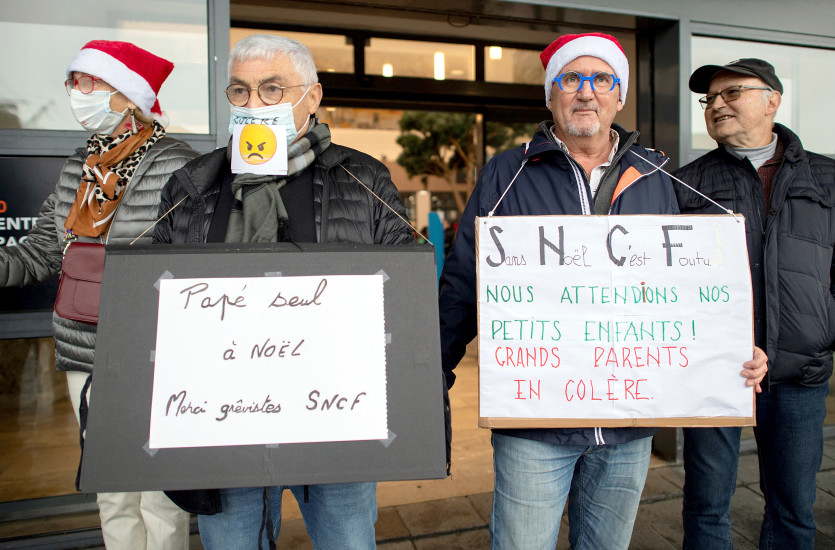 COLÈRE
Papé seul
à NOËL
Merci grêvistes SNCF
Sans Noël C'est Foutu!
NOUS ATTENDiONS NOS
PETITS ENFANTS!
GRANDS PARENTS
IN COLÈRE.